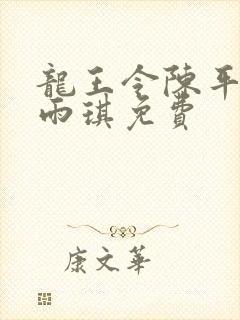 龍王令陳平
雨琪免費
康文華